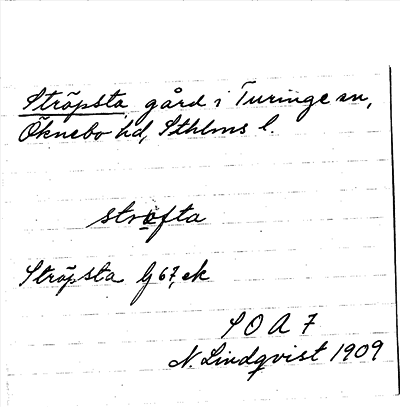 Ströpsta, gård i Turinge sn,
Öknebo hd, Sthlms l.
ströfta
Ströpsta G 67, ek
S O A 7
N. Lindqvist 1909